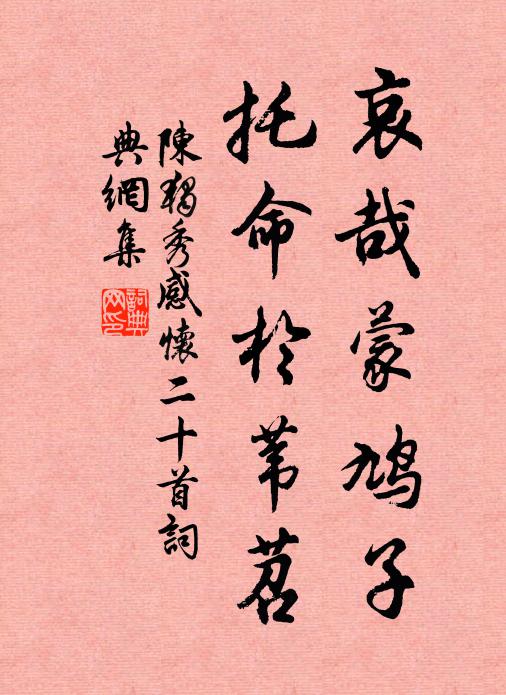 哀哉蒙鳩子
托命於苇苕
陳獨秀感懷二十首詞
典網集
詞典网印